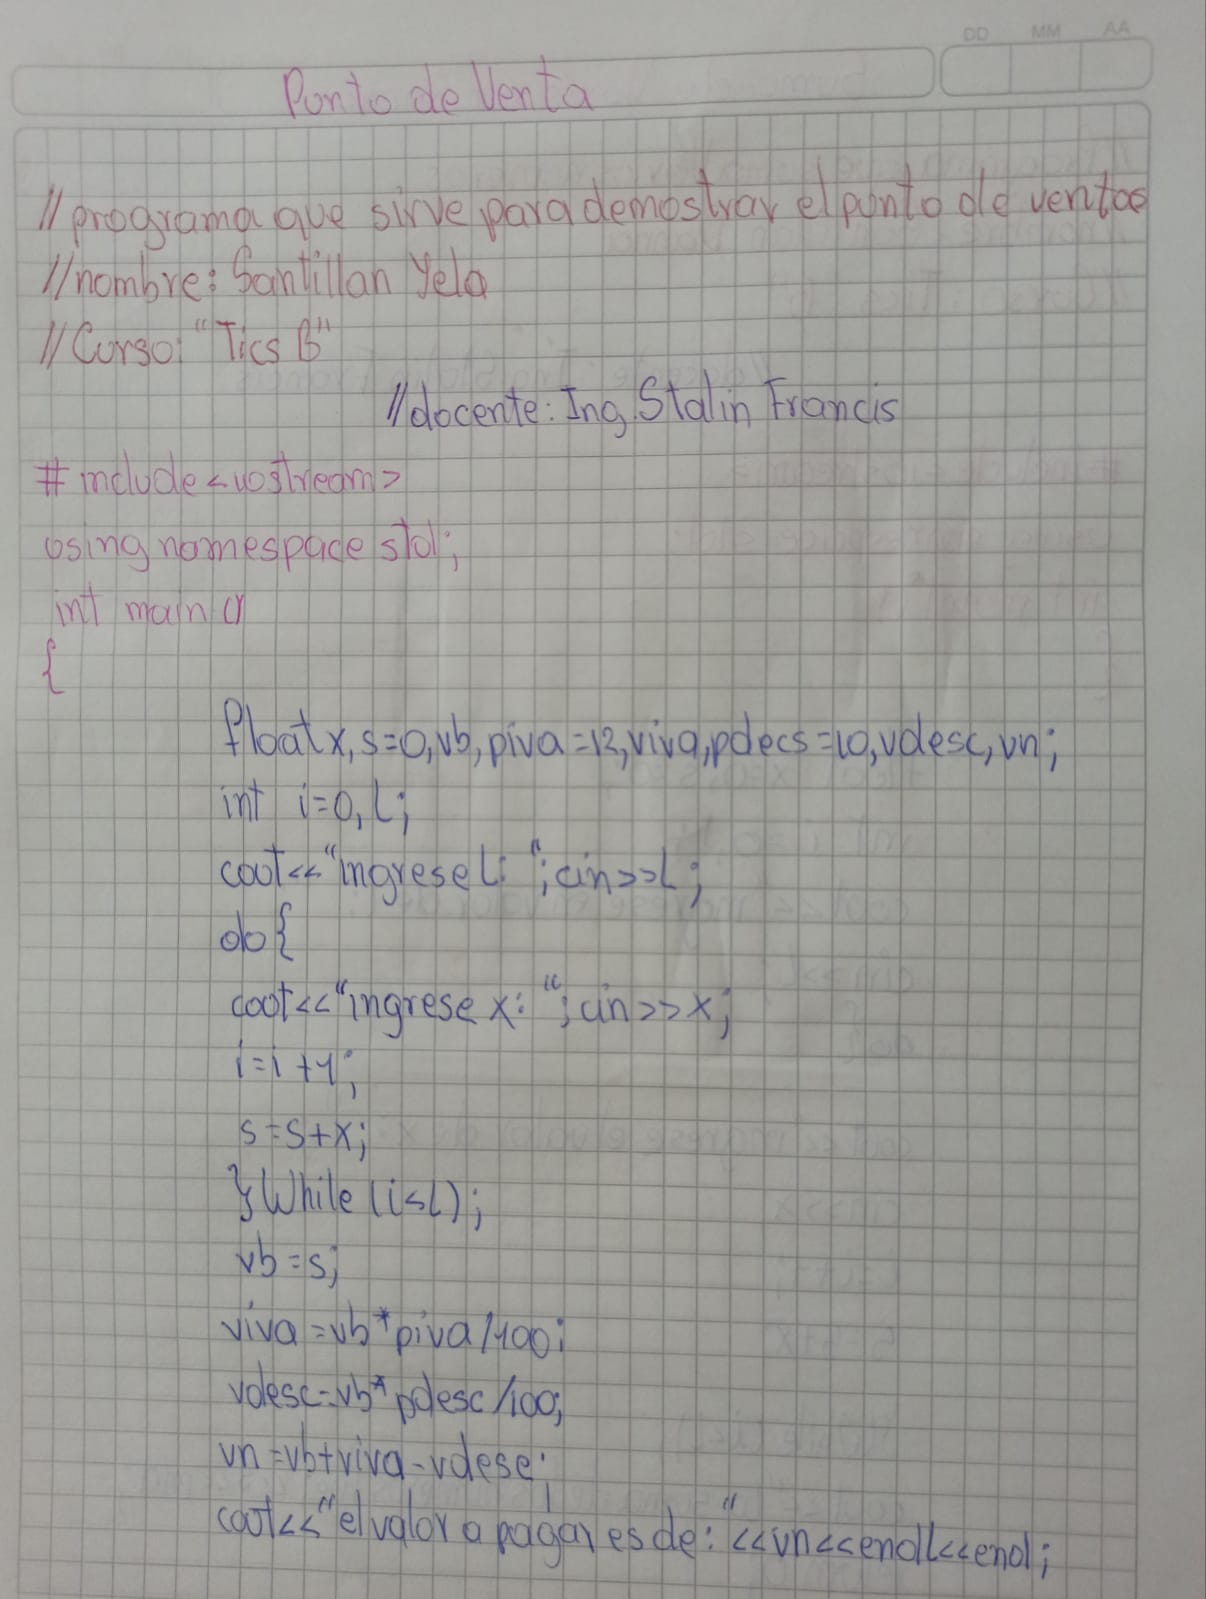 DD MM AA
Punto de Venta
//programa que sirve para demostrar el punto de ventas
//nombre: Santillan Yela
//Curso: "Tics B"
//docente: Ing. Stalin Francis
#include<iostream>
using namespace std;
int main ()
{
float x, s=0, vb, piva=12, viva, pdecs=10, vdesc, vn;
int i=0, L;
cout<<"ingrese L: "; cin>>L;
do{
cout<<"ingrese x: "; cin>>x;
i=i+1;
s=s+x;
}While (i<L);
vb=s;
viva=vb*piva/100;
vdesc=vb*pdesc/100;
vn=vb+viva-vdese;
cout<<"el valor a pagar es de: "<<vn<<endl<<end;